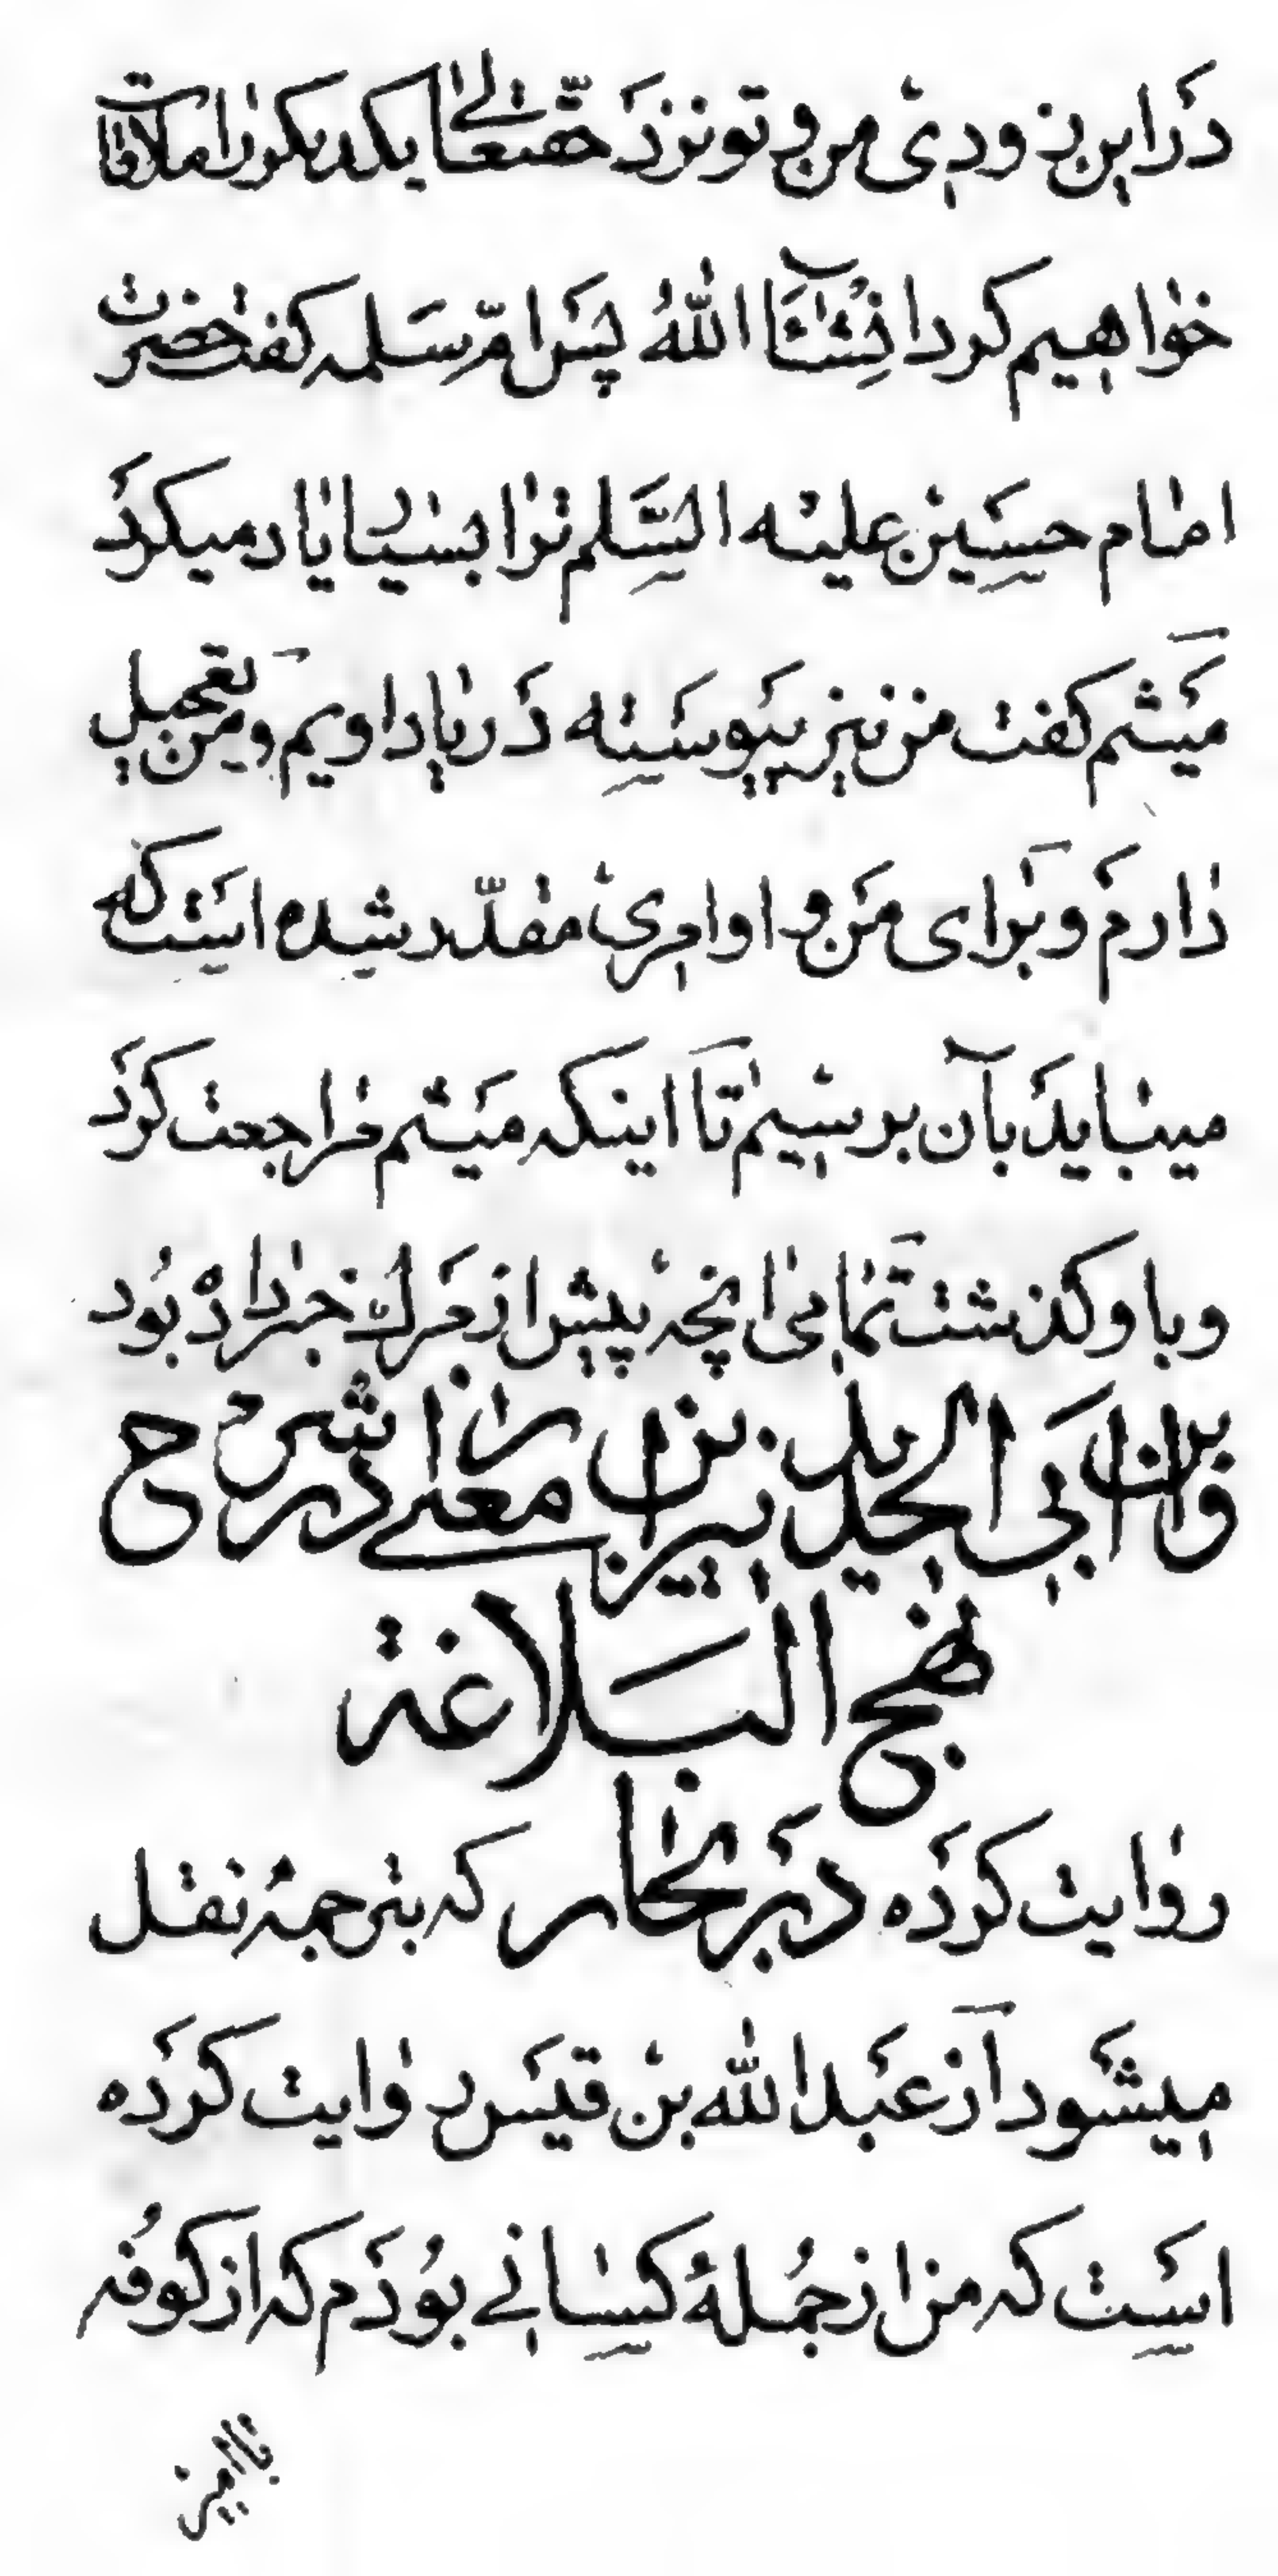 در این زودی من و تو نزد حقتعالی یکدیکر را ملاقات
خواهیم کرد انشآء الله پس ام سلمه کفت حضرت
امام حسین علیه السلم ترا بسیار یاد میکرد
میثم کفت من نیز پیوسته در یاد اویم و من تعجیل
دارم و برای من و او امری مقدّر شده است که
میباید بآن برسیم تا اینکه میثم مراجعت کرد
و باو کذشت تمامی انچه پیش از مرك خبر داده بود
و ابن ابی الحدید نیز این معنی را در شرح
نهج البلاغة
روایت کرده در بحار که بترجمهٔ نقل
میشود از عبد الله بن قیس روایت کرده
است که من از جملهٔ کسانی بودم که از کوفه
با امیر